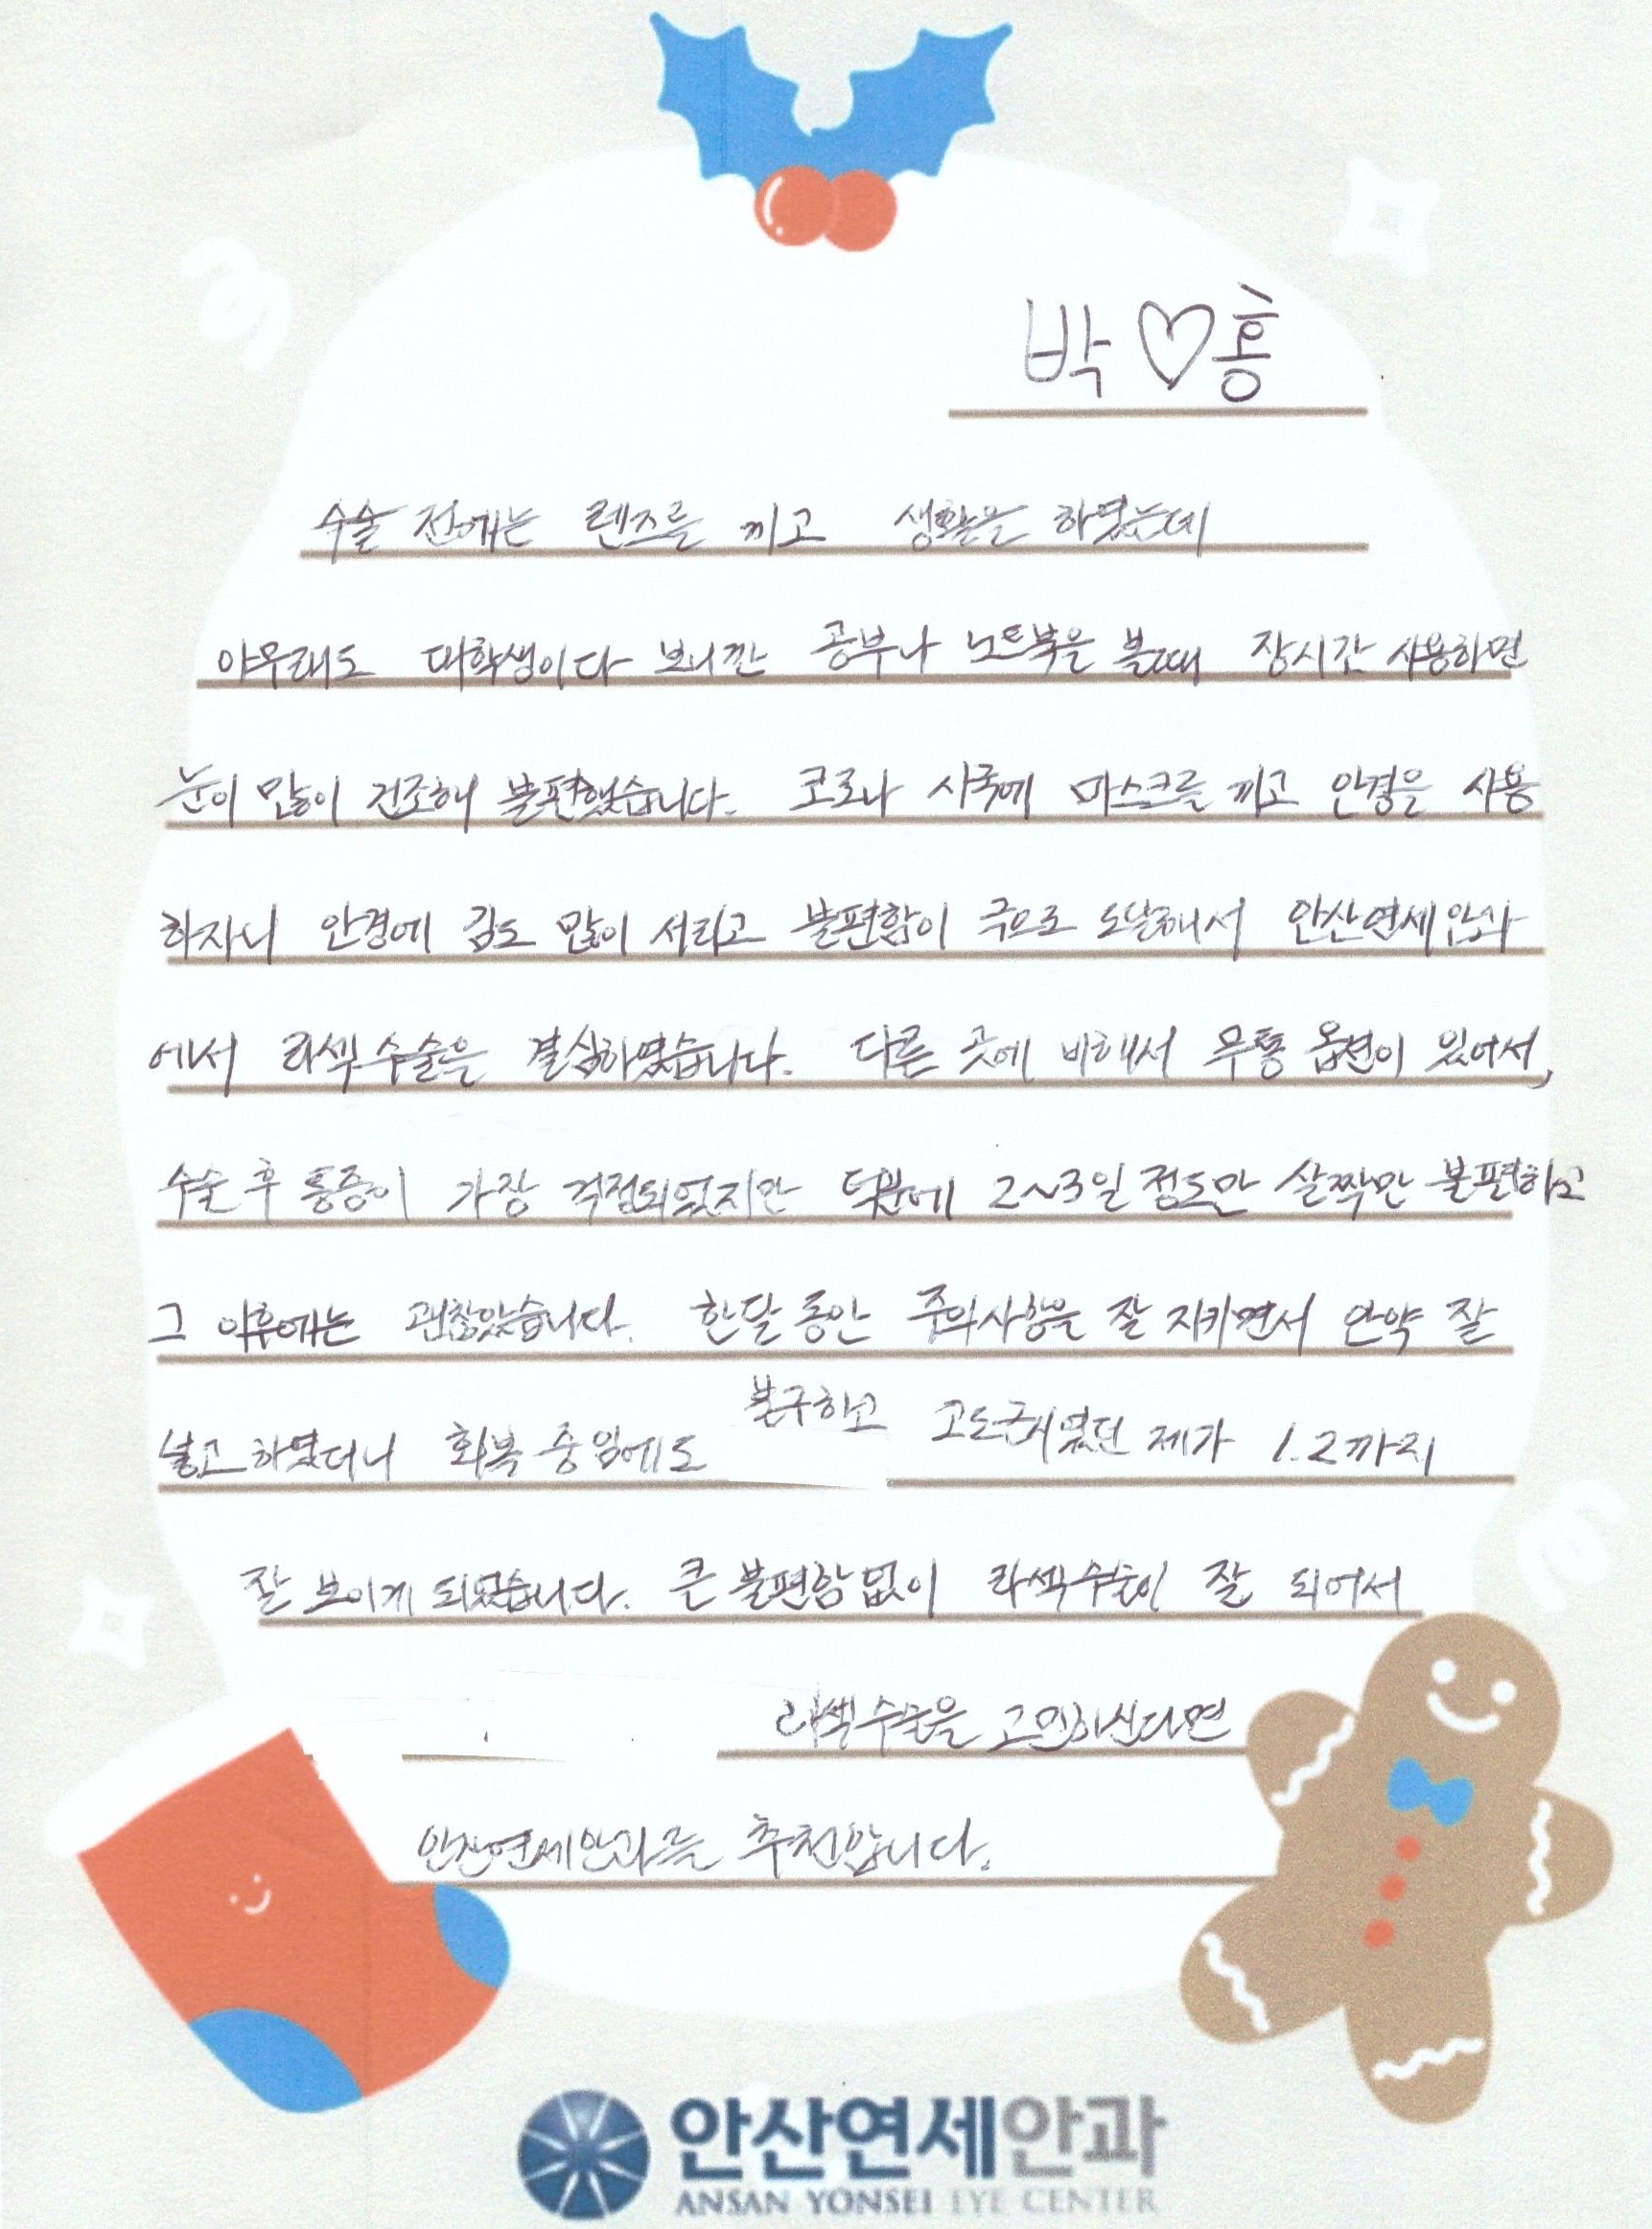 박♡홍
수술 전에는 렌즈를 끼고 생활을 하였는데
아무래도 대학생이다 보니깐 공부나 노트북을 볼때 장시간 사용하면
눈이 많이 건조해 불편했습니다. 코로나 시국에 마스크를 끼고 안경을 사용
하자니 안경에 김도 많이 서리고 불편함이 극으로 도달해서 안산연세안과
에서 라섹수술을 결심하였습니다. 다른 곳에 비해서 무통 옵션이 있어서,
수술 후 통증이 가장 걱정되었지만 덕분에 2~3일 정도만 살짝만 불편하고
그 이후에는 괜찮았습니다. 한달 동안 주의사항을 잘 지키면서 안약 잘
넣고 하였더니 회복 중임에도 불구하고 고도근시였던 제가 1.2까지
잘 보이게 되었습니다. 큰 불편함 없이 라섹수술이 잘 되어서
라섹수술을 고민하신다면
안산연세안과를 추천합니다.
안산연세안과
ANSAN YONSEI EYE CENTER